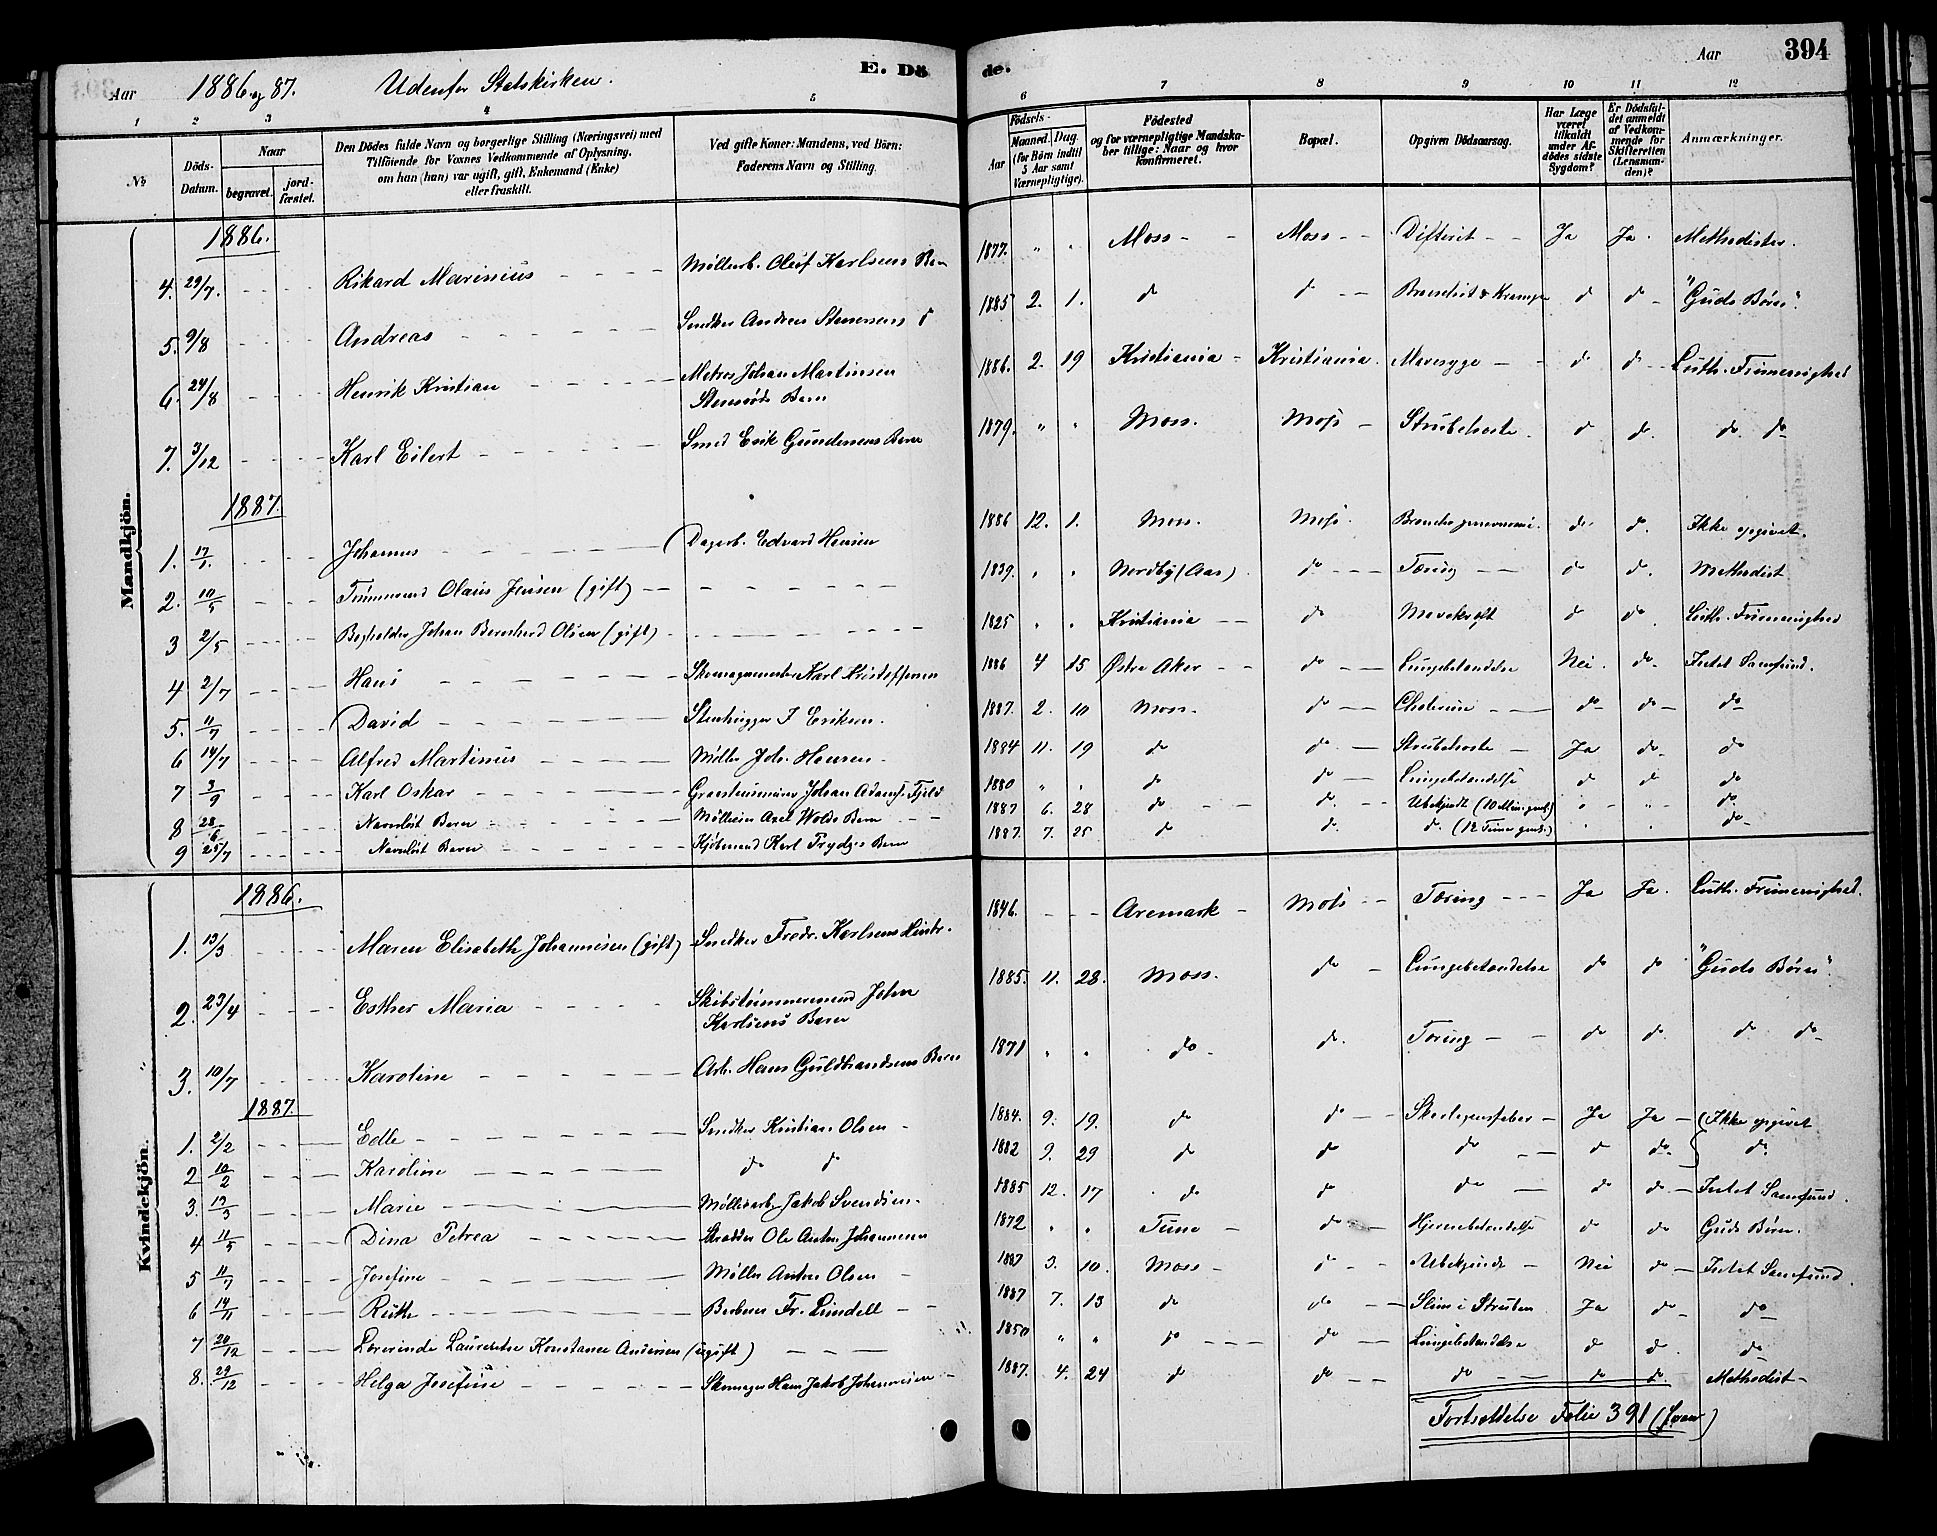 Aar 1886 og 87. Udenfor Statskirken. E. Döde. Aar 394
1 2 3 4 5 6 7 8 9 10 11 12
No
Döds-Datum.
Naar
begravet.
jord-fæstet.
Den Dödes fulde Navn og borgerlige Stilling (Næringsvei) med
Tilföiende for Voxnes Vedkommende af Oplysning,
om han (hun) var ugift, gift, Enkemand (Enke)
eller fraskilt.
Ved gifte Koner: Mandens, ved Börn:
Faderens Navn og Stilling.
Födsels-
Aar
Maaned. Dag.
(for Börn indtil
5 Aar samt
Værnepligtige).
Födested
og for værnepligtige Mandska-
ber tillige: Naar og hvor
konfirmeret.
Bopæl.
Opgiven Dödsaarsag.
Har Læge
været
tilkaldt
under Af-
dödes sidste
Sygdom?
Er Dödsfal-
det anmeldt
af Vedkom-
mende for
Skifteretten
(Lensman-
den)?
Anmærkninger.
Mandkjön.
1886.
4. 29/7. Rikard Marinius Møllerb. Oluf Karlsens Barn 1877. " " Moss Moss Difterit Ja Ja. Methodister.
5. 9/8 Andreas Snedker Andreas Stenersens d 1885 2. 1. d d Bronchit & Krampe d d "Guds Børn".
6. 24/8 Henrik Kristian Matros Johan Martinsen
Barn 1886. 2. 19 Kristiania Kristiania. Mavesyge d d Luth. Frimenighed
7. 3/12 Karl Eilert Smed Erik Gundersens Barn 1879. " " Moss. Moss Strubehoste d d. do do
1887.
1. 17/1. Johannes Dagarb. Edvard Hansen 1886 12. 1. Moss. Moss. d. d. Ikke opgivet.
2. 10/5 Tømmermand Olaus Jensen (gift) 1839. " " Nordby (Aas) d Tæring d d. Methodist
3 2/5 Johan Bernhard Olsen (gift) 1825 " " Kristiania do Mavekræft d do. Luth. Frimenighed
4 2/7 Hans Skomagermester Karl Kristoffersen 1886 4 15 Østre Aker do Lungebetændelse Nei. do Intet Samfund.
5. 11/7 David Stenhugger J Eriksen. 1887. 2. 10 Moss. do Cholerine do do do
6 14/7 Alfred Martinius Møller Joh. Hansen. 1884 11. 19 d do Strubehoste Ja do do
7 3/9 Karl Oskar Johan Adamsf. Fjeld 1880 " " d do Lungebetændelse d d do
8 28/6 Navnløst Barn Axel Wolds Barn 1887 6. 28 d d. Ubekjendt (10 Min. gml.) " " do
9 25/7 Navnløst Barn Kjøbmand Karl Barn 1887. 7. 25 d d. d. (12 Timer gml.) " " do
Kvindekjön.
1886.
1. 13/3 Maren Elisabeth Johannesen (gift) Snedker Fredr. Karlsens Hustr. 1846. Aremark Moss Tæring Ja Ja. Luth. Frimenighed.
2. 23/4 Esther Maria Skibstømmermand Johan
Karlsens Barn 1885. 11. 28. Moss. do Lungebetændelse do do "Guds Børn".
3. 10/7 Karoline Arb. Hans Guldbrandsens Barn 1871 " " do d. Tæring d d. d do
1887.
1. 2/2 Edle Snedker Kristian Olsen 1884. 9. 19. d d Skarlagensfeber Ja Ja (Ikke opgivet
2 10/2 Karoline d d 1882 9. 29 d d do d do do
3. 13/3 Marie Møllerarb. Jakob Svendsen. 1885 12. 17 d d do d d Intet Samfund.
4 11/5 Dina Petrea Skrædder Ole Anton Johannesen 1872 " " Tune d Hjernebetændelse d do Guds Børn.
5 11/7 Josefine Møller Anton Olsen 1887 3. 10. Moss d Ubekjendt Nei do Intet Samfund.
6 14/11 Ruth Fr. Lindell 1887 7. 13 do do Slim i Struben Ja do do
7 20/12 Konstance Andersen (ugift) 1850 " " do do Lungebetændelse d d. do
8. 29/12 Helga Josefine Skomager Hans Jakob Johannesen 1887. 4. 24 d do do do d. Methodist
Fortsættelse Folie 391 (foran)